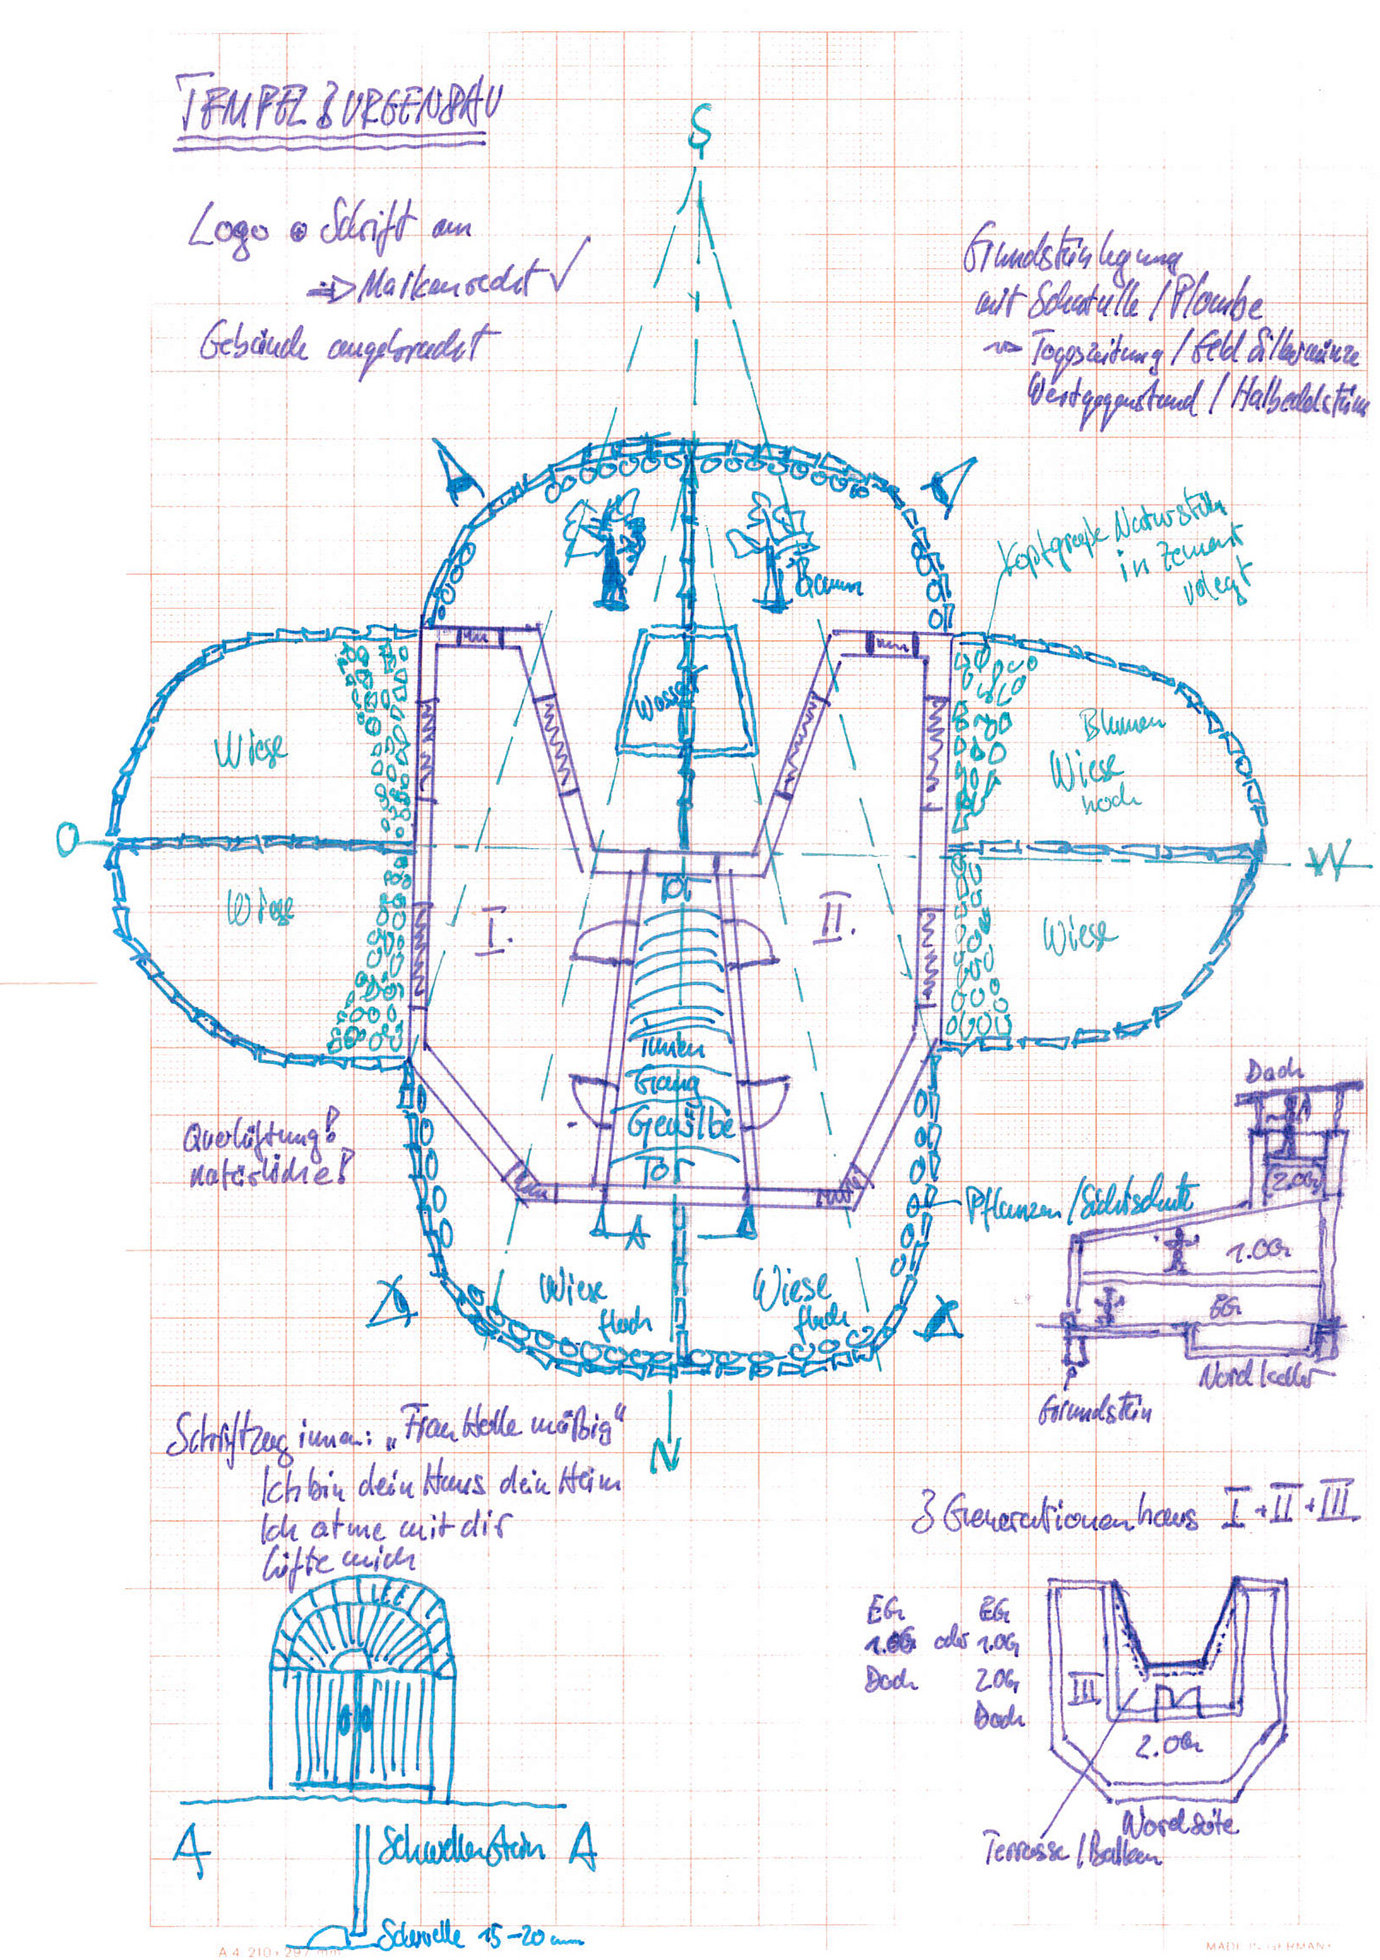 TEMPEL BURGENBAU
S
Logo & Schrift am
⇒ Markenrecht ✓
Gebäude angebracht
Grundsteinlegung
mit Schatulle / Plombe
~> Tageszeitung / Geld Silbermünze
Wertgegenstand / Halbedelstein
Kopfgroße Naturstein
in Zement
verlegt
Baum
Wasser
Wiese
Blumen
Wiese
hoch
O
W
Wiese
I.
II.
Wiese
Tor
innen
Gang
Gewölbe
Tor
Querlüftung!
natürliche!
Dach
2.OG
Pflanzen / Sichtschutz
1.OG
EG
Nordkeller
Grundstein
A
Wiese
flach
Wiese
flach
N
Schriftzug innen: „Frau Holle mäßig“
Ich bin dein Haus dein Heim
Ich atme mit dir
lüfte mich
3 Generationenhaus I + II + III
EG EG
1.OG oder 1.OG
Dach 2.OG
Dach
III
2.OG
Nordseite
Terrasse / Balkon
A Schwellenstein A
Schwelle 15-20 mm
A 4 210 x 297 mm
MADE IN GERMANY